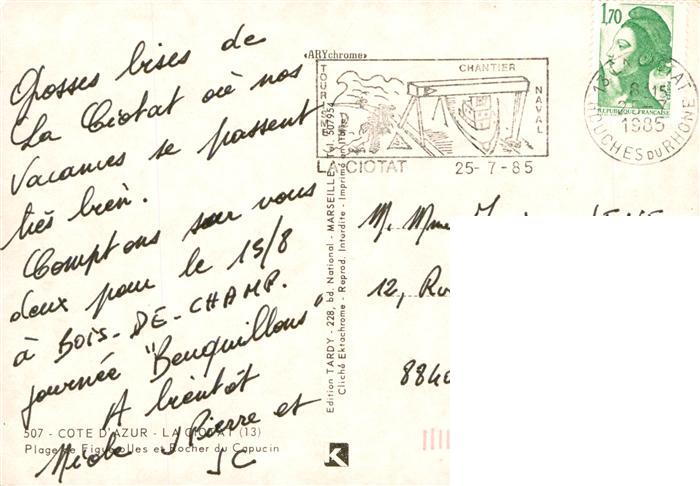 Grosses bises de
La Ciotat où nos
Vacances se passent
très bien.
Comptons sur vous
deux pour le 15/8
à BOIS-DE-CHAMP.
journée "Bouquillons"
A bientôt
Pierre et
JC
507 - COTE D'AZUR - LA CIOTAT (13)
Plage de Figuerolles et Rocher du Capucin
«ARYchrome»
Edition TARDY - 228, bd. National - MARSEILLE - Tél. 507954
Cliché Ektachrome - Reprod. Interdite - Imprimé en Italie
K
TOURISME
CHANTIER
NAVAL
LA CIOTAT 25-7-85
1,70
REPUBLIQUE FRANÇAISE
13 LA CIOTAT
1985
BOUCHES DU RHONE
M. Mme
12,
8840